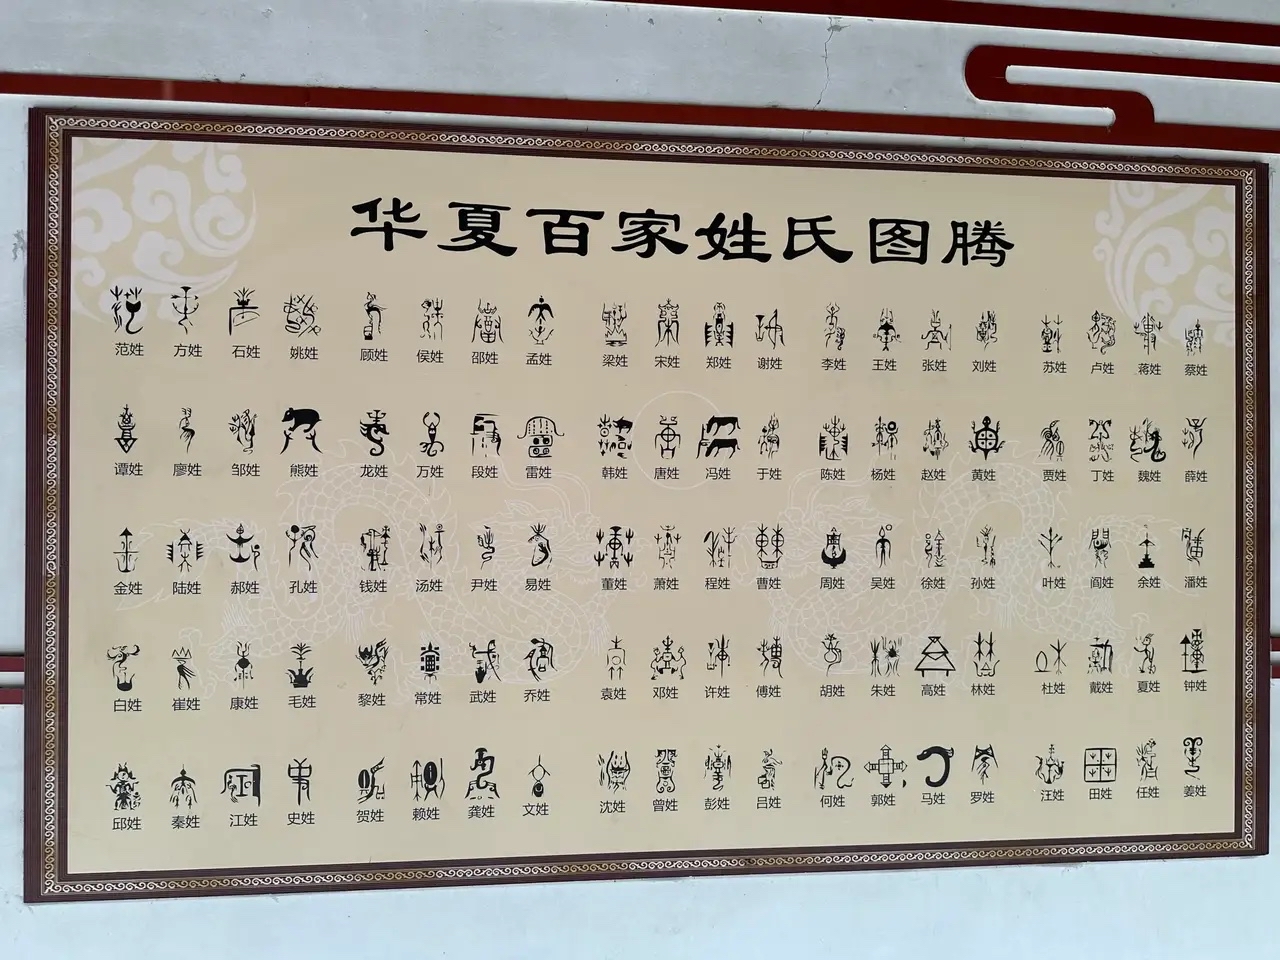 华夏百家姓氏图腾
范姓 方姓 石姓 姚姓 顾姓 侯姓 邵姓 孟姓 梁姓 宋姓 郑姓 谢姓 李姓 王姓 张姓 刘姓 苏姓 卢姓 蒋姓 蔡姓
谭姓 廖姓 邹姓 熊姓 龙姓 万姓 段姓 雷姓 韩姓 唐姓 冯姓 于姓 陈姓 杨姓 赵姓 黄姓 贾姓 丁姓 魏姓 薛姓
金姓 陆姓 郝姓 孔姓 钱姓 汤姓 尹姓 易姓 董姓 萧姓 程姓 曹姓 周姓 吴姓 徐姓 孙姓 叶姓 阎姓 余姓 潘姓
白姓 崔姓 康姓 毛姓 黎姓 常姓 武姓 乔姓 袁姓 邓姓 许姓 傅姓 胡姓 朱姓 高姓 林姓 杜姓 戴姓 夏姓 钟姓
邱姓 秦姓 江姓 史姓 贺姓 赖姓 龚姓 文姓 沈姓 曾姓 彭姓 吕姓 何姓 郭姓 马姓 罗姓 汪姓 田姓 任姓 姜姓